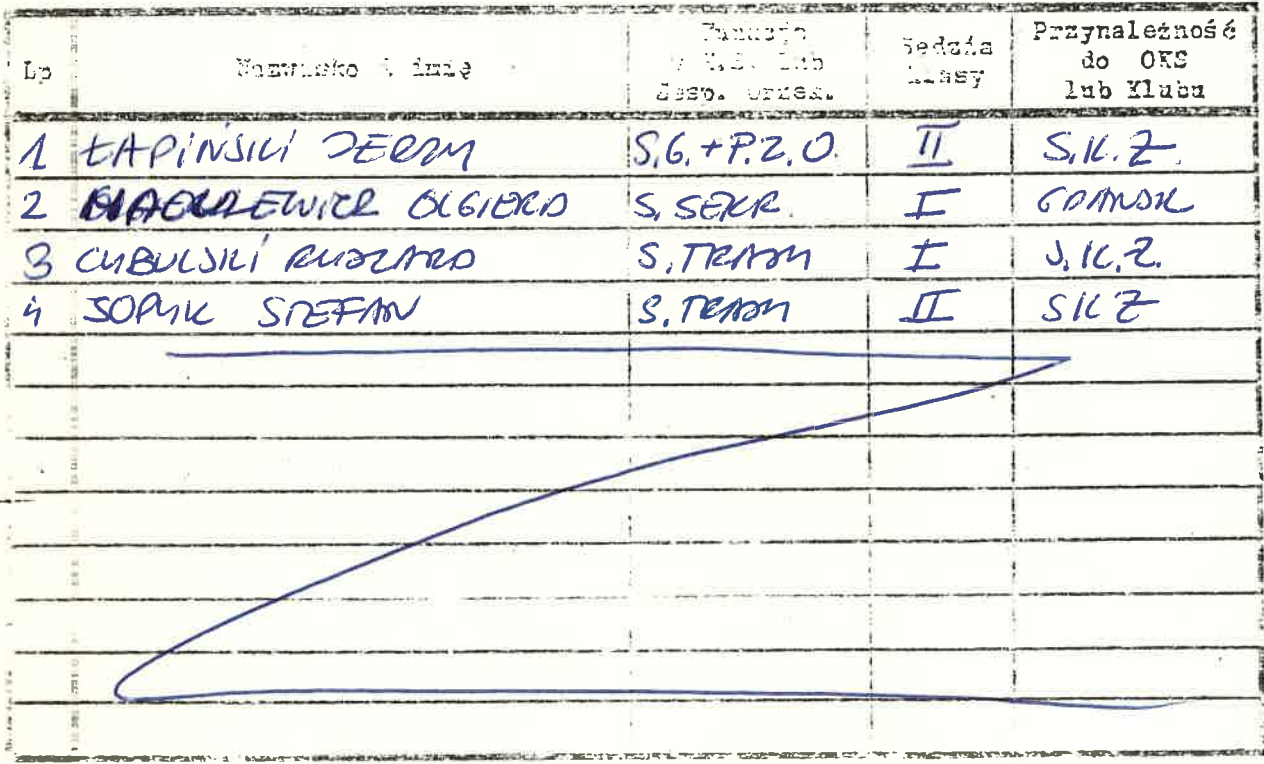 Lp Nazwisko i imię Funkcja lub Zesp. Orzek. Sędzia klasy Przynależność do OKS lub Klubu
1 ŁAPIŃSKI JERZY S.G.+P.Z.O. II S.K.Z.
2 OLGIERD S. SEKR. I GDAŃSK
3 CYBULSKI RYSZARD S. TRASY I S.K.Z.
4 SOPYK STEFAN S. TRASY II SKZ